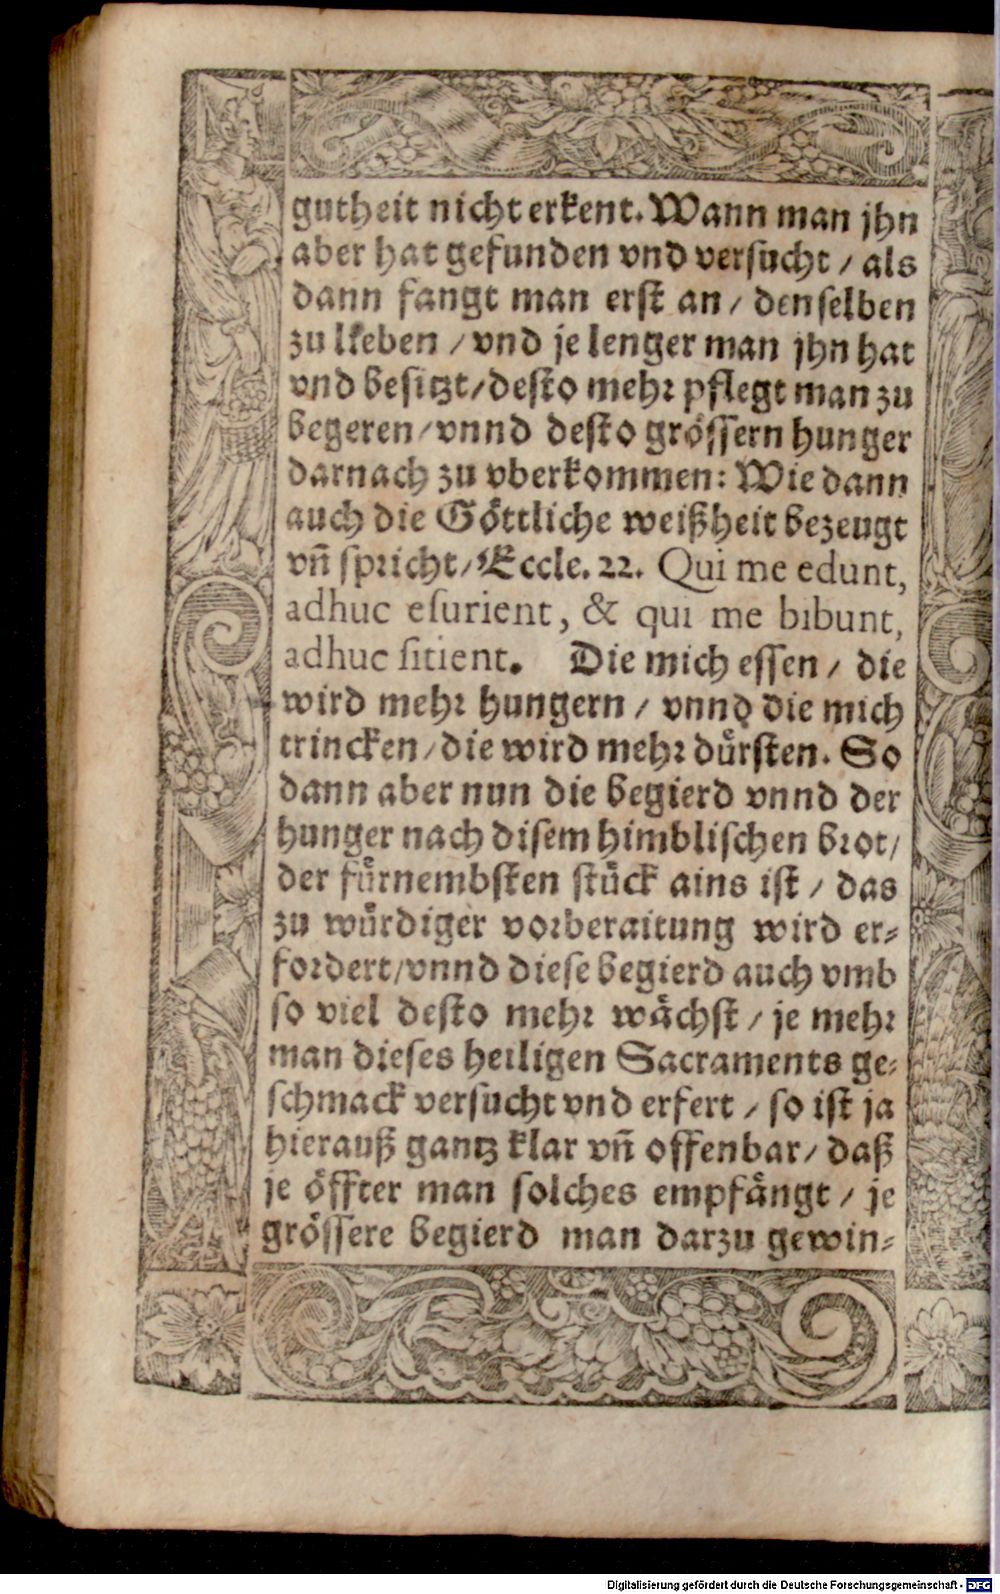 gutheit nicht erkent. Wann man jhn
aber hat gefunden vnd versucht / als
dann fangt man erst an / denselben
zu lkeben / vnd je lenger man jhn hat
vnd besitzt / desto mehr pflegt man zu
begeren / vnnd desto grössern hunger
darnach zu vberkommen: Wie dann
auch die Göttliche weißheit bezeugt
vñ spricht / Eccle. 22. Qui me edunt,
adhuc esurient, & qui me bibunt,
adhuc sitient. Die mich essen / die
wird mehr hungern / vnnd die mich
trincken / die wird mehr dürsten. So
dann aber nun die begierd vnnd der
hunger nach disem himblischen brot /
der fürnembsten stück ains ist / das
zu würdiger vorberaitung wird er⸗
fordert / vnnd diese begierd auch vmb
so viel desto mehr wächst / je mehr
man dieses heiligen Sacraments ge⸗
schmack versucht vnd erfert / so ist ja
hierauß gantz klar vñ offenbar / daß
je öffter man solches empfängt / je
grössere begierd man darzu gewin⸗
Digitalisierung gefördert durch die Deutsche Forschungsgemeinschaft - DFG